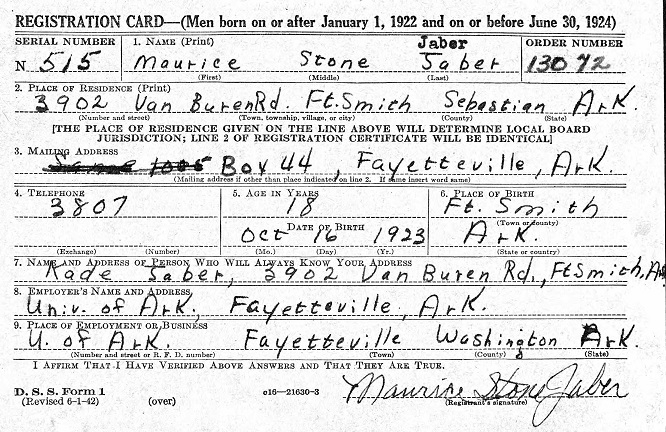 REGISTRATION CARD—(Men born on or after January 1, 1922 and on or before June 30, 1924)
SERIAL NUMBER 1. NAME (Print) Jaber ORDER NUMBER
N 515 Maurice Stone Jaber 13072
(First) (Middle) (Last)
2. PLACE OF RESIDENCE (Print)
3902 Van Buren Rd. Ft. Smith Sebastian Ark.
(Number and street) (Town, township, village, or city) (County) (State)
[THE PLACE OF RESIDENCE GIVEN ON THE LINE ABOVE WILL DETERMINE LOCAL BOARD
JURISDICTION; LINE 2 OF REGISTRATION CERTIFICATE WILL BE IDENTICAL]
3. MAILING ADDRESS
Box 44, Fayetteville, Ark.
(Mailing address if other than place indicated on line 2. If same insert word same)
4. TELEPHONE 5. AGE IN YEARS 6. PLACE OF BIRTH
3807 18 Ft. Smith
(Town or county)
DATE OF BIRTH
Oct 16 1923 Ark.
(Exchange) (Number) (Mo.) (Day) (Yr.) (State or country)
7. NAME AND ADDRESS OF PERSON WHO WILL ALWAYS KNOW YOUR ADDRESS
Kade Jaber, 3902 Van Buren Rd., Ft Smith, Ark
8. EMPLOYER'S NAME AND ADDRESS
Univ. of Ark., Fayetteville, Ark.
9. PLACE OF EMPLOYMENT OR BUSINESS
U. of Ark. Fayetteville Washington Ark.
(Number and street or R. F. D. number) (Town) (County) (State)
I AFFIRM THAT I HAVE VERIFIED ABOVE ANSWERS AND THAT THEY ARE TRUE.
D. S. S. Form 1
(Revised 6-1-42) (over) c16—21630-3 Maurice Stone Jaber
(Registrant's signature)